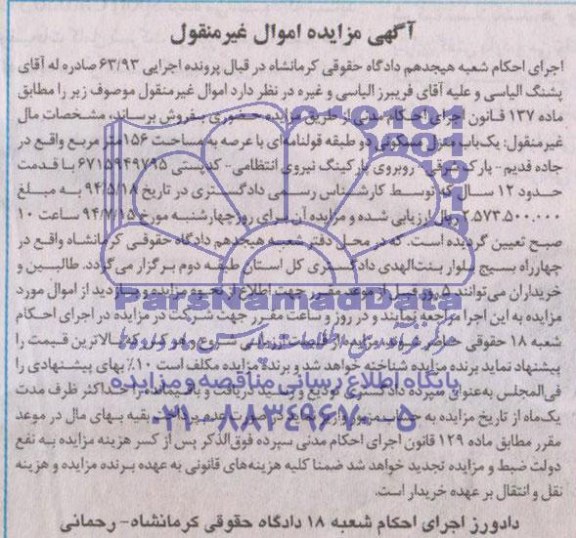 آگهی مزایده اموال غیرمنقول
اجرای احکام شعبه هیجدهم دادگاه حقوقی کرمانشاه در قبال پرونده اجرایی ۶۳/۹۳ صادره له آقای
پشنگ الیاسی و علیه آقای فریبرز الیاسی و غیره در نظر دارد اموال غیرمنقول موصوف زیر را مطابق
ماده ۱۳۷ قانون اجرای احکام مدنی از طریق مزایده حضوری بفروش برساند، مشخصات مال
غیرمنقول: یک‌باب منزل مسکونی دو طبقه قولنامه‌ای با عرصه به مساحت ۱۵۶متر مربع واقع در
جاده قدیم - پارک شرقی - روبروی پارکینگ نیروی انتظامی - کدپستی ۶۷۱۵۹۴۹۷۹۵ با قدمت
حدود ۱۲ سال که توسط کارشناس رسمی دادگستری در تاریخ ۹۴/۵/۱۸ به مبلغ
۲,۵۷۳,۵۰۰,۰۰۰ ریال ارزیابی شده و مزایده آن برای روز چهارشنبه مورخ ۹۴/۷/۱۵ ساعت ۱۰
صبح تعیین گردیده است. که در محل دفتر شعبه هیجدهم دادگاه حقوقی کرمانشاه واقع در
چهارراه بسیج بلوار بنت‌الهدی دادگستری کل استان طبقه دوم برگزار می‌گردد. طالبین و
خریداران می‌توانند ۵ روز قبل از موعد مقرر جهت اطلاع از نحوه مزایده و بازدید از اموال مورد
مزایده به این اجرا مراجعه نمایند و در روز و ساعت مقرر جهت شرکت در مزایده در اجرای احکام
شعبه ۱۸ حقوقی حاضر شوند مزایده از قیمت ارزیابی شروع و هر کس که بالاترین قیمت را
پیشنهاد نماید برنده مزایده شناخته خواهد شد و برنده مزایده مکلف است ۱۰٪ بهای پیشنهادی را
فی‌المجلس به‌عنوان سپرده دادگستری تودیع و رسید دریافت و باقیمانده را حداکثر ظرف مدت
یک‌ماه از تاریخ مزایده به حساب مزبور واریز نماید در صورت عدم پرداخت بقیه بهای مال در موعد
مقرر مطابق ماده ۱۲۹ قانون اجرای احکام مدنی سپرده فوق‌الذکر پس از کسر هزینه مزایده به نفع
دولت ضبط و مزایده تجدید خواهد شد ضمنا کلیه هزینه‌های قانونی به عهده برنده مزایده و هزینه
نقل و انتقال بر عهده خریدار است.
دادورز اجرای احکام شعبه ۱۸ دادگاه حقوقی کرمانشاه - رحمانی
ParsNamadData
پایگاه اطلاع رسانی مناقصه و مزایده
۰۲۱-۸۸۳۴۹۶۷۰-۵